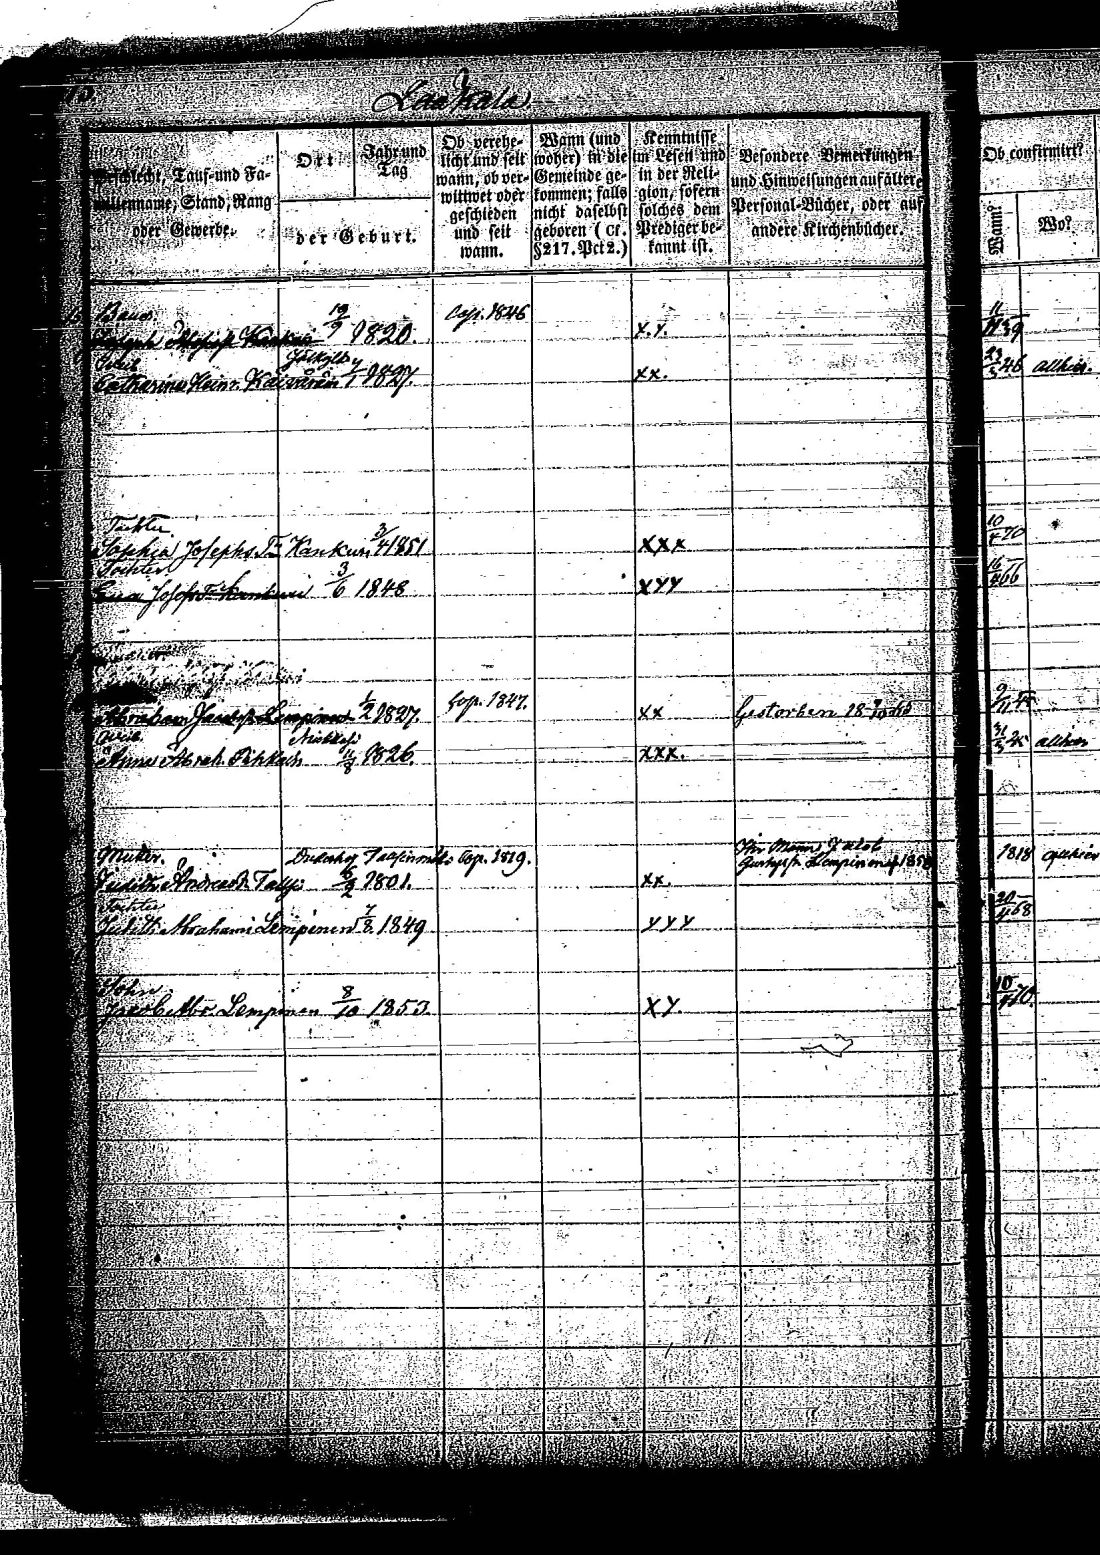 15.
Laakala
Geschlecht, Tauf- und Fa-
milienname, Stand, Rang
oder Gewerbe.
Ort
Jahr und
Tag
der Geburt.
Ob verehe-
licht und seit
wann, ob ver-
wittwet oder
geschieden
und seit
wann.
Wann (und
woher) in die
Gemeinde ge-
kommen; falls
nicht daselbst
geboren (cf.
§217. Pct 2.)
Kenntnisse
im Lesen und
in der Reli-
gion, sofern
solches dem
Prediger be-
kannt ist.
Besondere Bemerkungen
und Hinweisungen auf ältere
Personal-Bücher, oder auf
andere Kirchenbücher.
Ob confirmirt?
Wann?
Wo?
Bauer
19/9 1820. Cop. 1846 x.y. 39
Weib
Catharina Heinr. 1827. xx. 23/5 46 allhier.
Tochter
Sophia Josephs T. Kankun 3/4 1851 xxx 10/4 70
Tochter
Josephs T. 3/6 1848 xyy 16/4 66
Abraham Lempinen 1/2 1827. Cop. 1847. xx Gestorben
Weib
Anna Abrah. Pihkah 11/8 1826. xxx. 31/5 allhier
Mutter. Cop. 1819. Ihr Mann Jacob
Lempinen 1818 allhier
Judith Andreas T. 6/2 1801. xx.
Tochter
Judith Abrahami Lempinen 7/2 1849 yyy 20/4 68
Sohn
Jacob Abr. Lempinen 8/10 1853. xy. 10/4 70.